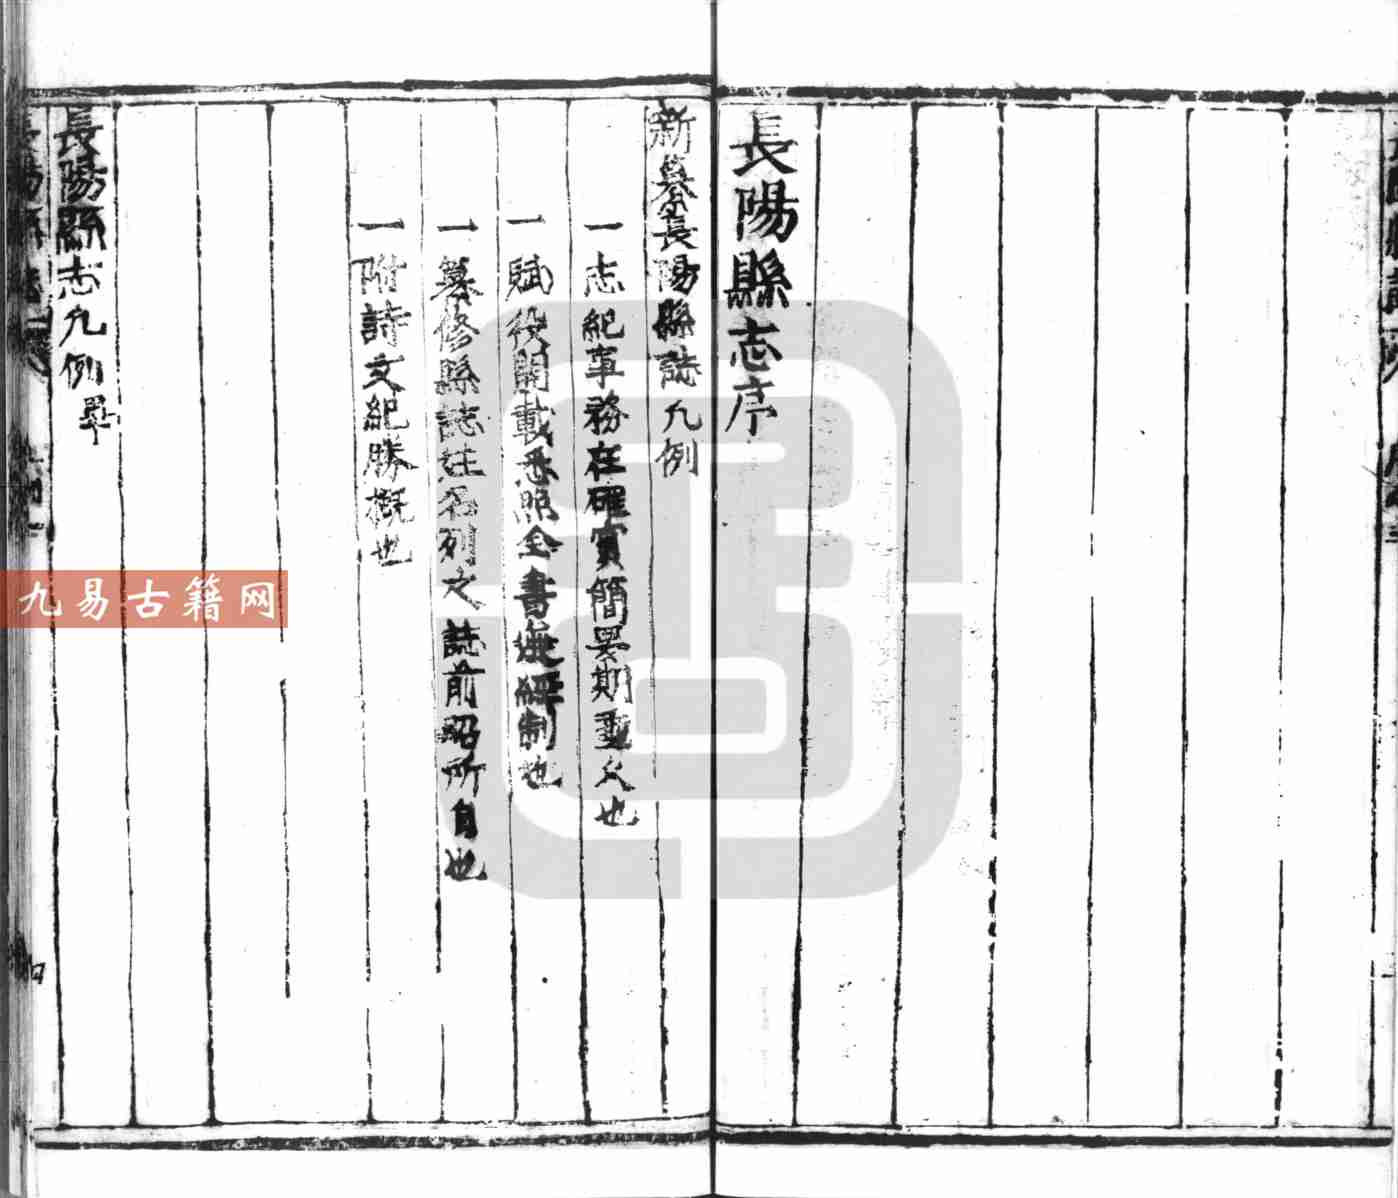 長陽縣志序
新纂長陽縣誌凢例
一志紀事務在確實簡畧期垂久也
一賦役開載悉照全書遵經制也
一纂修縣誌姓名列之誌前昭所自也
一附詩文紀勝概也
長陽縣志凢例畢
九易古籍网